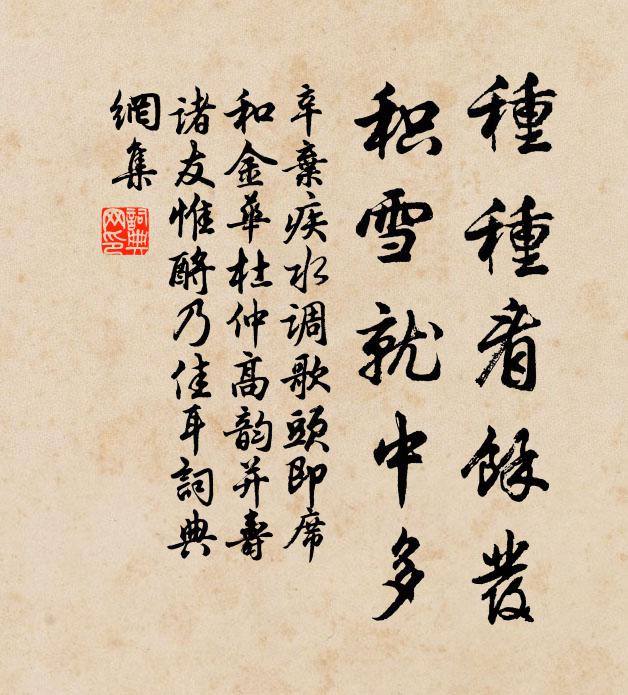 種種看餘髮
积雪就中多
辛棄疾水调歌頭即席
和金華杜仲高韵并壽
诸友惟酹乃佳耳詞典
網集
詞典
网印